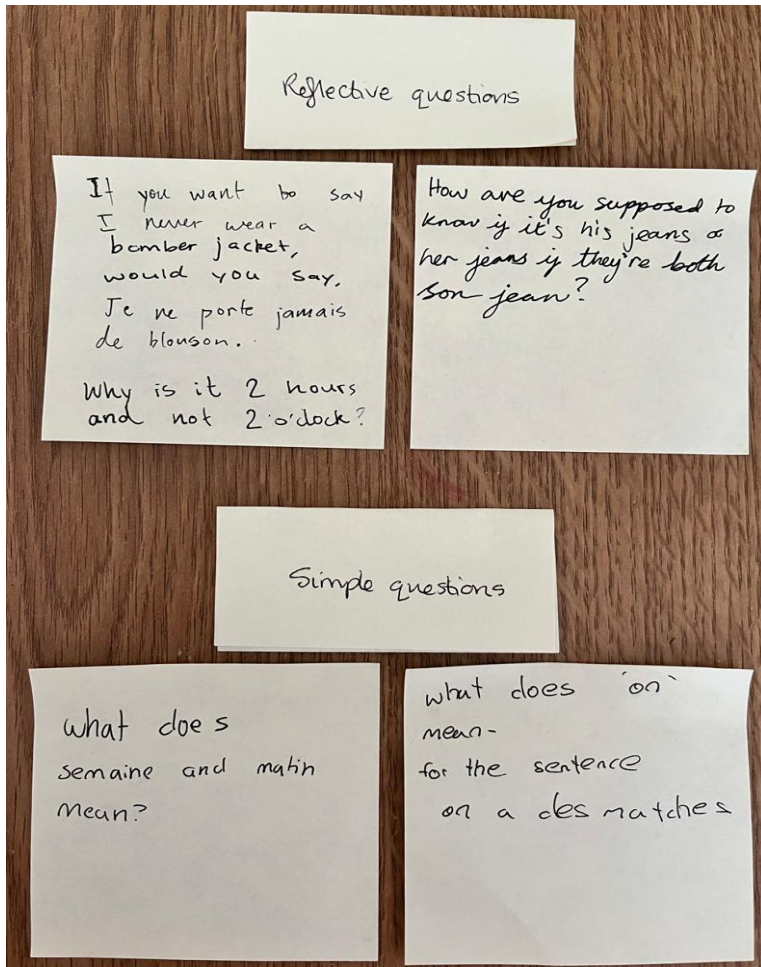 Reflective questions
If you want to say
I never wear a
bomber jacket,
would you say,
Je ne porte jamais
de blouson.
Why is it 2 hours
and not 2 o'clock?
How are you supposed to
know if it's his jeans or
her jeans if they're both
son jean?
Simple questions
what does
semaine and matin
mean?
what does 'on'
mean-
for the sentence
on a des matches